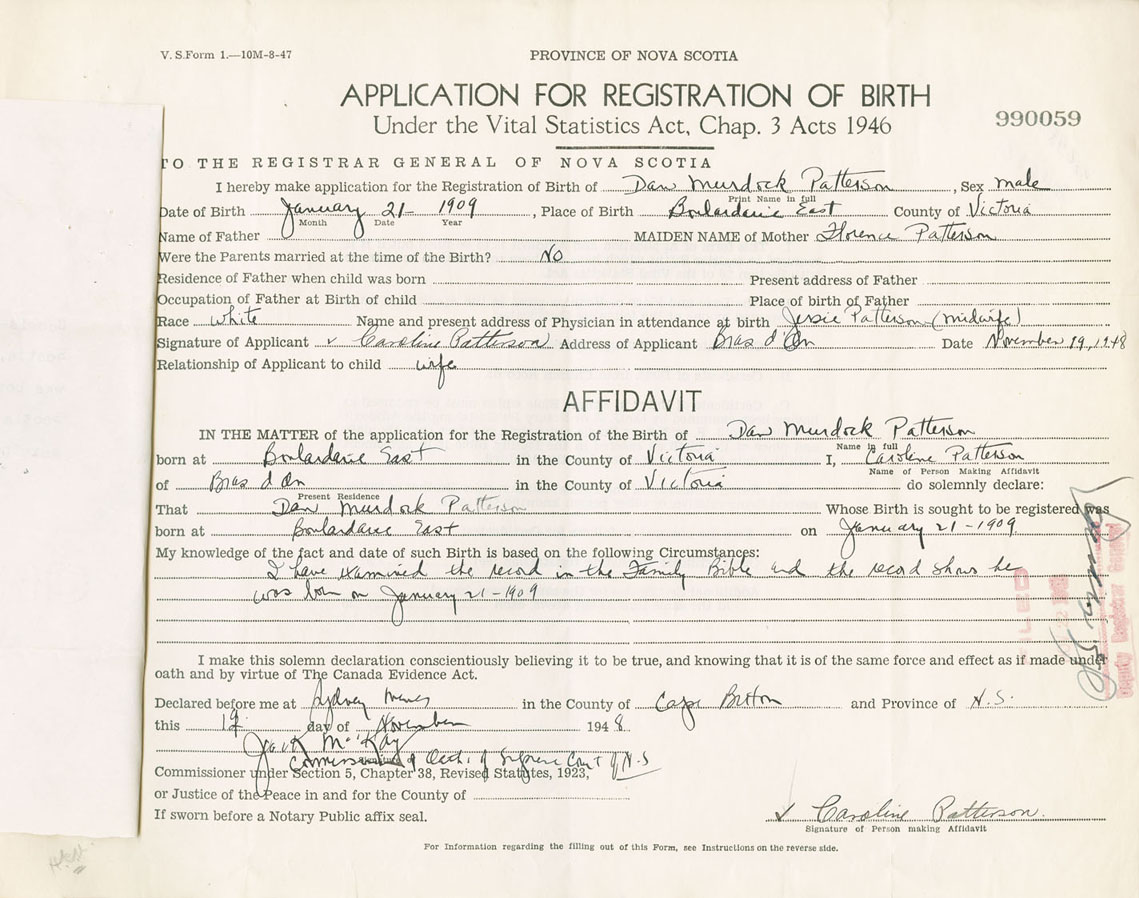 V. S. Form 1.—10M-8-47
PROVINCE OF NOVA SCOTIA
APPLICATION FOR REGISTRATION OF BIRTH
Under the Vital Statistics Act, Chap. 3 Acts 1946
990059
TO THE REGISTRAR GENERAL OF NOVA SCOTIA
I hereby make application for the Registration of Birth of Dan Murdock Patterson, Sex male
Print Name in full
Date of Birth January 21- 1909, Place of Birth Boulardarie East County of Victoria
Month Date Year
Name of Father MAIDEN NAME of Mother Florence Patterson
Were the Parents married at the time of the Birth? No
Residence of Father when child was born Present address of Father
Occupation of Father at Birth of child Place of birth of Father
Race white Name and present address of Physician in attendance at birth Jessie Patterson (midwife)
Signature of Applicant v Caroline Patterson Address of Applicant Bras d'Or Date November 19, 1948
Relationship of Applicant to child wife
AFFIDAVIT
IN THE MATTER of the application for the Registration of the Birth of Dan Murdock Patterson
Name in full
born at Boulardarie East in the County of Victoria I, Caroline Patterson
Name of Person Making Affidavit
of Bras d'Or in the County of Victoria do solemnly declare:
Present Residence
That Dan Murdock Patterson Whose Birth is sought to be registered was
born at Boulardarie East on January 21-1909
My knowledge of the fact and date of such Birth is based on the following Circumstances:
I have examined the record in the Family Bible and the record shows he
was born on January 21-1909
I make this solemn declaration conscientiously believing it to be true, and knowing that it is of the same force and effect as if made under
oath and by virtue of The Canada Evidence Act.
Declared before me at Sydney Mines in the County of Cape Breton and Province of N.S.
this 19 day of November 1948
Jack McKay
Commissioner of Oaths of Supreme Court of N.S
Commissioner under Section 5, Chapter 38, Revised Statutes, 1923,
or Justice of the Peace in and for the County of
If sworn before a Notary Public affix seal.
v Caroline Patterson
Signature of Person making Affidavit
For Information regarding the filling out of this Form, see Instructions on the reverse side.
FILED
Deputy Registrar General